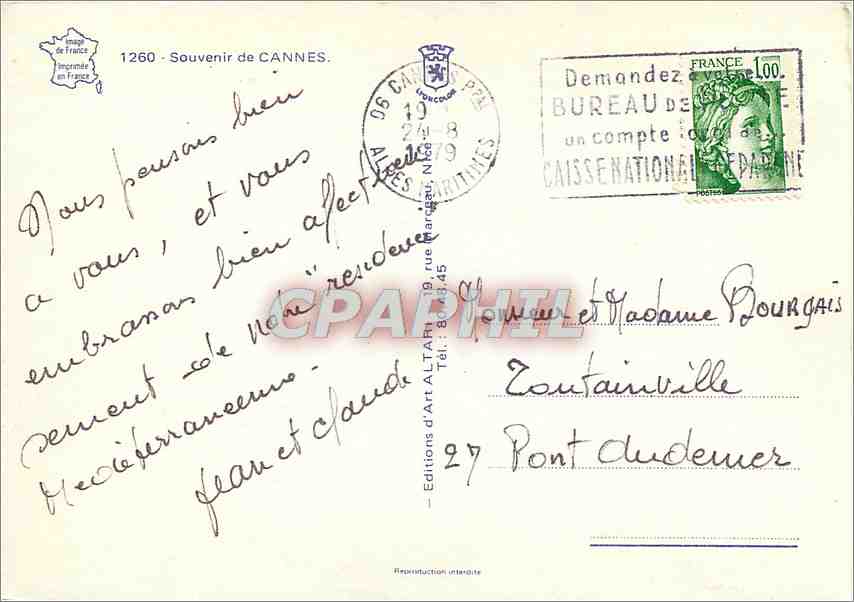 Image
de France
Imprimée
en France
1260 - Souvenir de CANNES.
LYONCOLOR
06 CANNES Pal
19
24-8
1979
ALPES MARITIMES
Demandez à votre
BUREAU DE POSTE
un compte local de
CAISSE NATIONALE D'EPARGNE
FRANCE
1,00
POSTES
Nous pensons bien
à vous, et vous
embrassons bien affectueu
sement de notre "résidence"
Méditerranéenne.
Jean et Claude
Monsieur et Madame BOURGAIS
Toutainville
27 Pont Audemer
— Editions d'Art ALTARI - 19, rue Marceau, Nice
Tél. : 80.48.45
CPAPHIL
Reproduction interdite